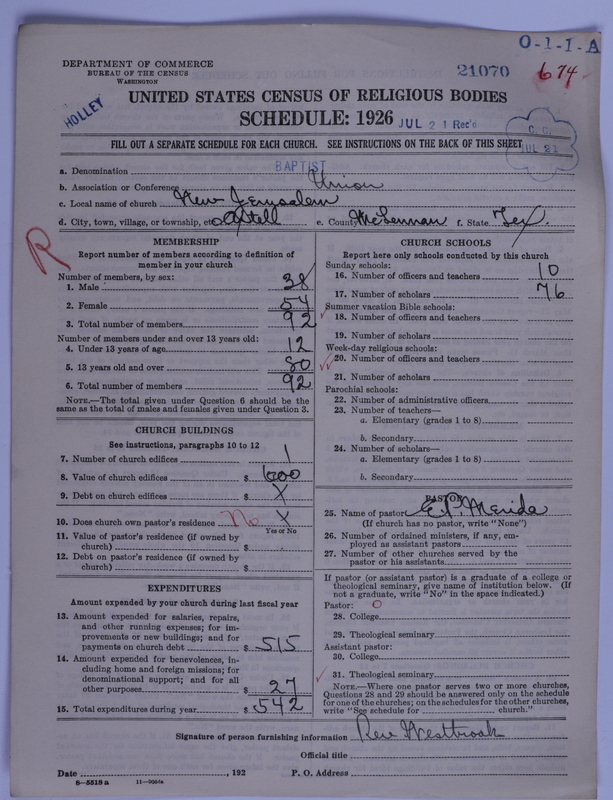 O-1-1-A
DEPARTMENT OF COMMERCE
BUREAU OF THE CENSUS
WASHINGTON
21070
674
HOLLEY
UNITED STATES CENSUS OF RELIGIOUS BODIES
SCHEDULE: 1926
JUL 21 Rec'd
C. C.
JUL 21
FILL OUT A SEPARATE SCHEDULE FOR EACH CHURCH. SEE INSTRUCTIONS ON THE BACK OF THIS SHEET
a. Denomination BAPTIST
b. Association or Conference Union
c. Local name of church New Jerusalem
d. City, town, village, or township, etc. Axtell e. County McLennan f. State Tex.
R
MEMBERSHIP
Report number of members according to definition of
member in your church
Number of members, by sex:
1. Male 38
2. Female 54
3. Total number of members 92
Number of members under and over 13 years old:
4. Under 13 years of age 12
5. 13 years old and over 80
6. Total number of members 92
NOTE.—The total given under Question 6 should be the
same as the total of males and females given under Question 3.
CHURCH BUILDINGS
See instructions, paragraphs 10 to 12
7. Number of church edifices 1
8. Value of church edifices $ 600
9. Debt on church edifices $ X
10. Does church own pastor's residence No X
Yes or No
11. Value of pastor's residence (if owned by
church) $
12. Debt on pastor's residence (if owned by
church) $
EXPENDITURES
Amount expended by your church during last fiscal year
13. Amount expended for salaries, repairs,
and other running expenses; for im-
provements or new buildings; and for
payments on church debt $ 515
14. Amount expended for benevolences, in-
cluding home and foreign missions; for
denominational support; and for all
other purposes $ 27
15. Total expenditures during year $ 542
CHURCH SCHOOLS
Report here only schools conducted by this church
Sunday schools:
16. Number of officers and teachers 10
17. Number of scholars 76
Summer vacation Bible schools:
18. Number of officers and teachers
19. Number of scholars
Week-day religious schools:
20. Number of officers and teachers
21. Number of scholars
Parochial schools:
22. Number of administrative officers
23. Number of teachers—
a. Elementary (grades 1 to 8)
b. Secondary
24. Number of scholars—
a. Elementary (grades 1 to 8)
b. Secondary
PASTOR
25. Name of pastor E. P. Merida
(If church has no pastor, write "None")
26. Number of ordained ministers, if any, em-
ployed as assistant pastors
27. Number of other churches served by the
pastor or his assistants
If pastor (or assistant pastor) is a graduate of a college or
theological seminary, give name of institution below. (If
not a graduate, write "No" in the space indicated.)
Pastor: O
28. College
29. Theological seminary
Assistant pastor:
30. College
31. Theological seminary
NOTE.—Where one pastor serves two or more churches,
Questions 28 and 29 should be answered only on the schedule
for one of the churches; on the schedules for the other churches,
write "See schedule for church."
Signature of person furnishing information Rev Westbrook
Official title
Date , 192 P. O. Address
8-5518 a 11-9064a